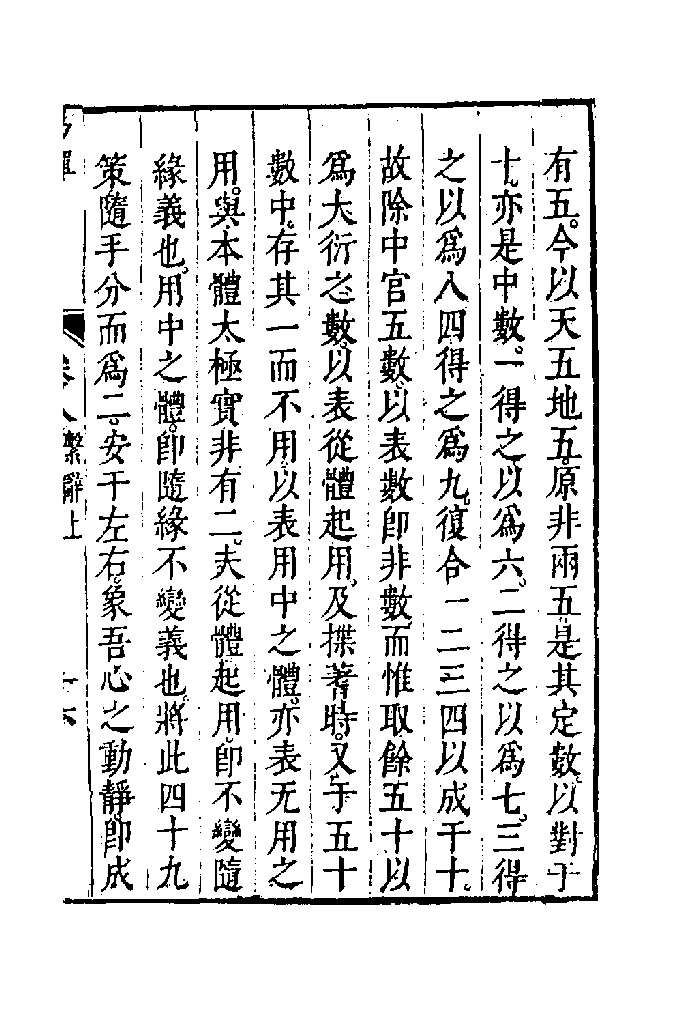 有五。今以天五地五。原非兩五。是其定數。以對于
十。亦是中數。一得之以爲六。二得之以爲七。三得
之以爲八四得之爲九。復合一二三四以成于十。
故除中官五數。以表數卽非數。而惟取餘五十以
爲大衍之數。以表從體起用。及揲蓍時。又于五十
數中。存其一而不用。以表用中之體。亦表无用之
用。與本體太極實非有二。夫從體起用。卽不變隨
緣義也。用中之體。卽隨緣不變義也。將此四十九
策隨手分而爲二。安于左右。象吾心之動靜。卽成
繫辭上